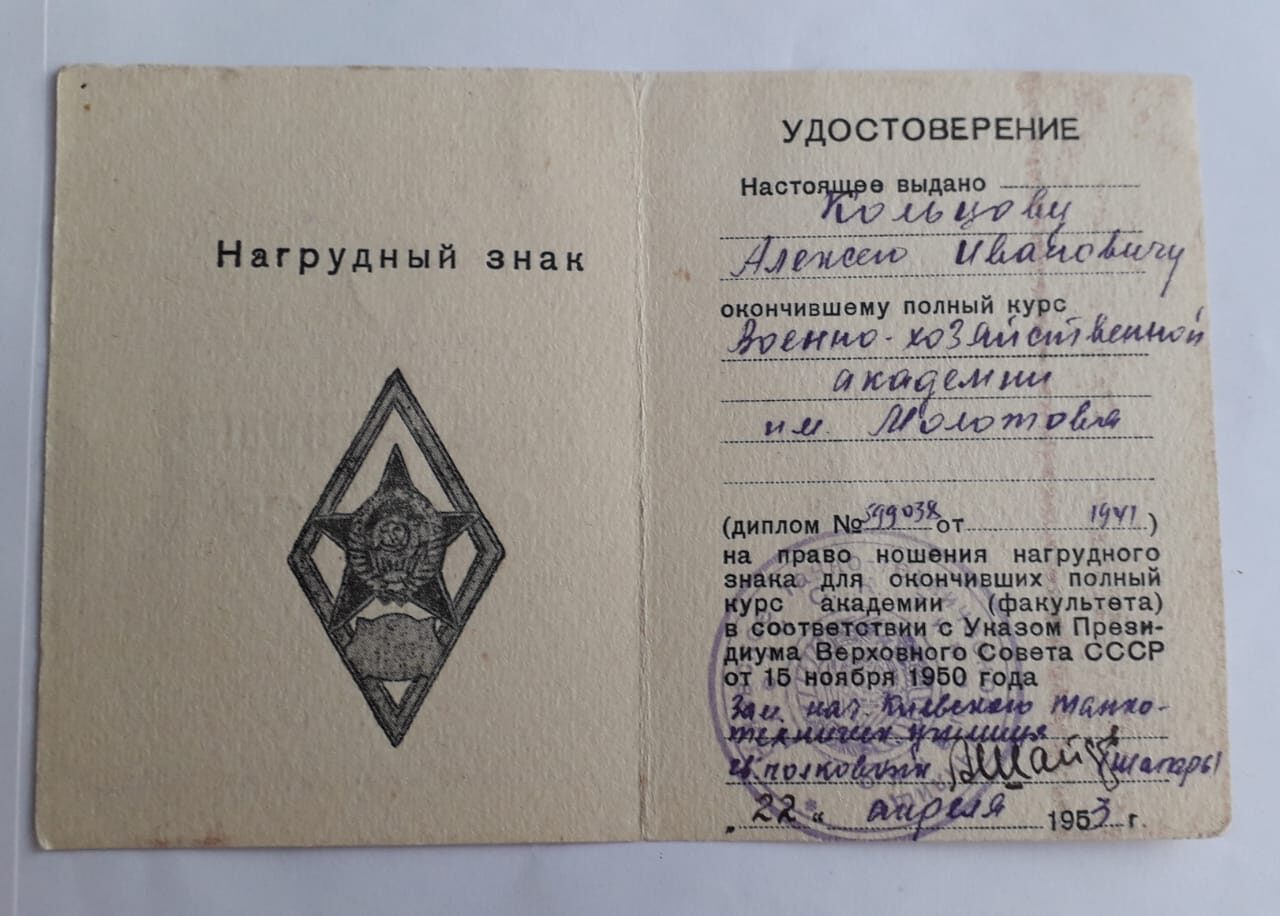 Нагрудный знак
УДОСТОВЕРЕНИЕ
Настоящее выдано
Кольцову
Алексею Ивановичу
окончившему полный курс
Военно-хозяйственной
академии
им. Молотова
(диплом № 599038 от 1941)
на право ношения нагрудного
знака для окончивших полный
курс академии (факультета)
в соответствии с Указом Прези-
диума Верховного Совета СССР
от 15 ноября 1950 года
Зам. нач. Киевского танко-
техническ. училища
полковник
„22“ апреля 1953 г.